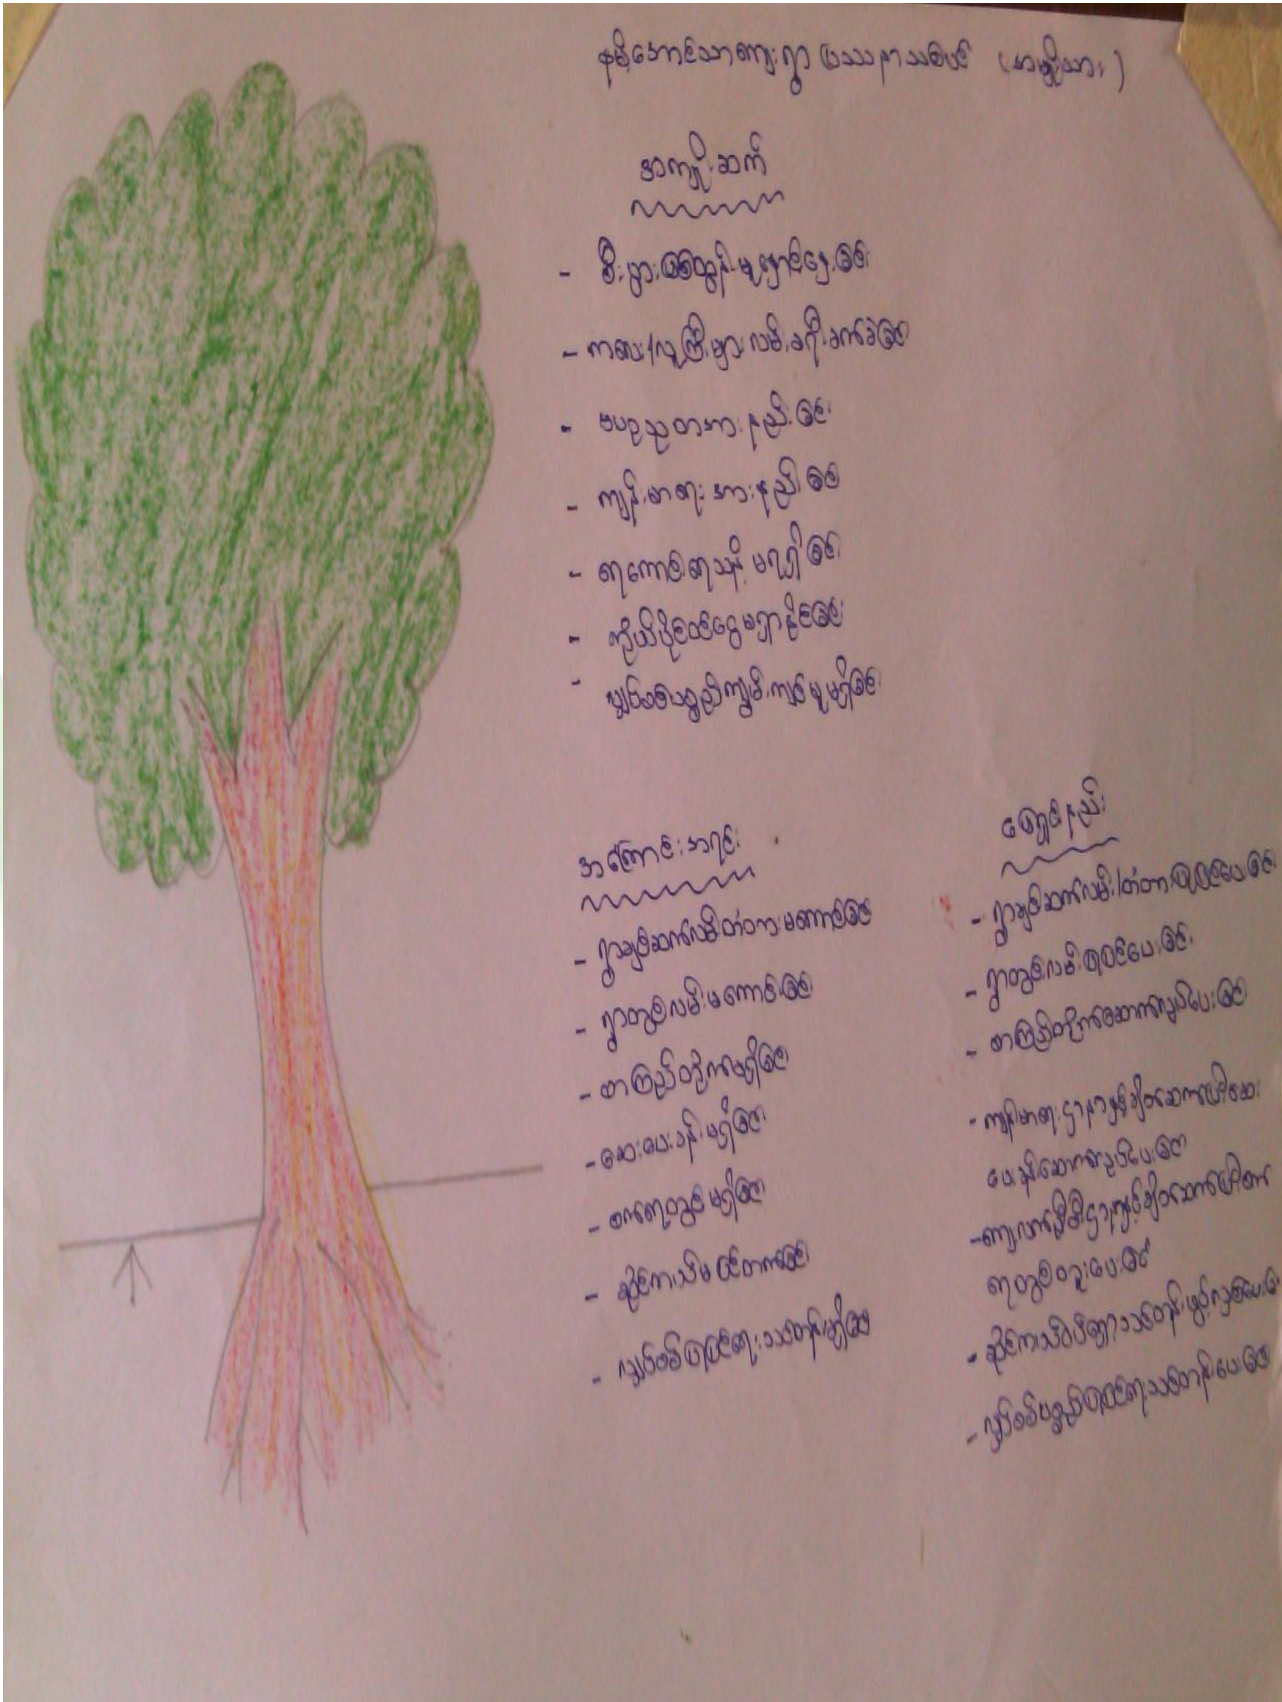 နမ့်အောင်သာကျေးရွာ ပြဿနာသစ်ပင် (အမျိုးသား)
အကျိုးဆက်
- စီးပွားဖြစ်ထွန်းမှုနှောင့်နှေးခြင်း
- ကလေး/လူကြီးများ လမ်းခရီးခက်ခဲခြင်း
- ဗဟုသုတအားနည်းခြင်း
- ကျန်းမာရေးအားနည်းခြင်း
- ရေကောင်းရေသန့်မရရှိခြင်း
- ကိုယ်ပိုင်ဝင်ငွေမရှာနိုင်ခြင်း
- လျှပ်စစ်ပစ္စည်းကျွမ်းကျင်မှုမရှိခြင်း
အကြောင်းအရင်း
- ရွာချင်းဆက်လမ်းတံတားမကောင်းခြင်း
- ရွာတွင်းလမ်းမကောင်းခြင်း
- စာကြည့်တိုက်မရှိခြင်း
- ဆေးပေးခန်းမရှိခြင်း
- စက်ရေတွင်းမရှိခြင်း
- ဆိုင်ကယ်မပြင်တတ်ခြင်း
- လျှပ်စစ်ပြုပြင်ရေးသင်တန်းမရှိခြင်း
ဖြေရှင်းနည်း
- ရွာချင်းဆက်လမ်း/တံတားပြုပြင်ပေးခြင်း
- ရွာတွင်းလမ်းပြုပြင်ပေးခြင်း
- စာကြည့်တိုက်ဆောက်လုပ်ပေးခြင်း
- ကျန်းမာရေးဌာနနှင့်ချိတ်ဆက်ပြီးဆေး
ပေးခန်းဆောက်လုပ်ပေးခြင်း
- ကျေးလက်ဖွံ့ဖြိုးဌာနနှင့်ချိတ်ဆက်ပြီးစက်
ရေတွင်းတူးပေးခြင်း
- ဆိုင်ကယ်ပြင်သင်တန်းဖွင့်လှစ်ပေး
- လျှပ်စစ်ပစ္စည်းပြုပြင်ရေးသင်တန်းပေးခြင်း